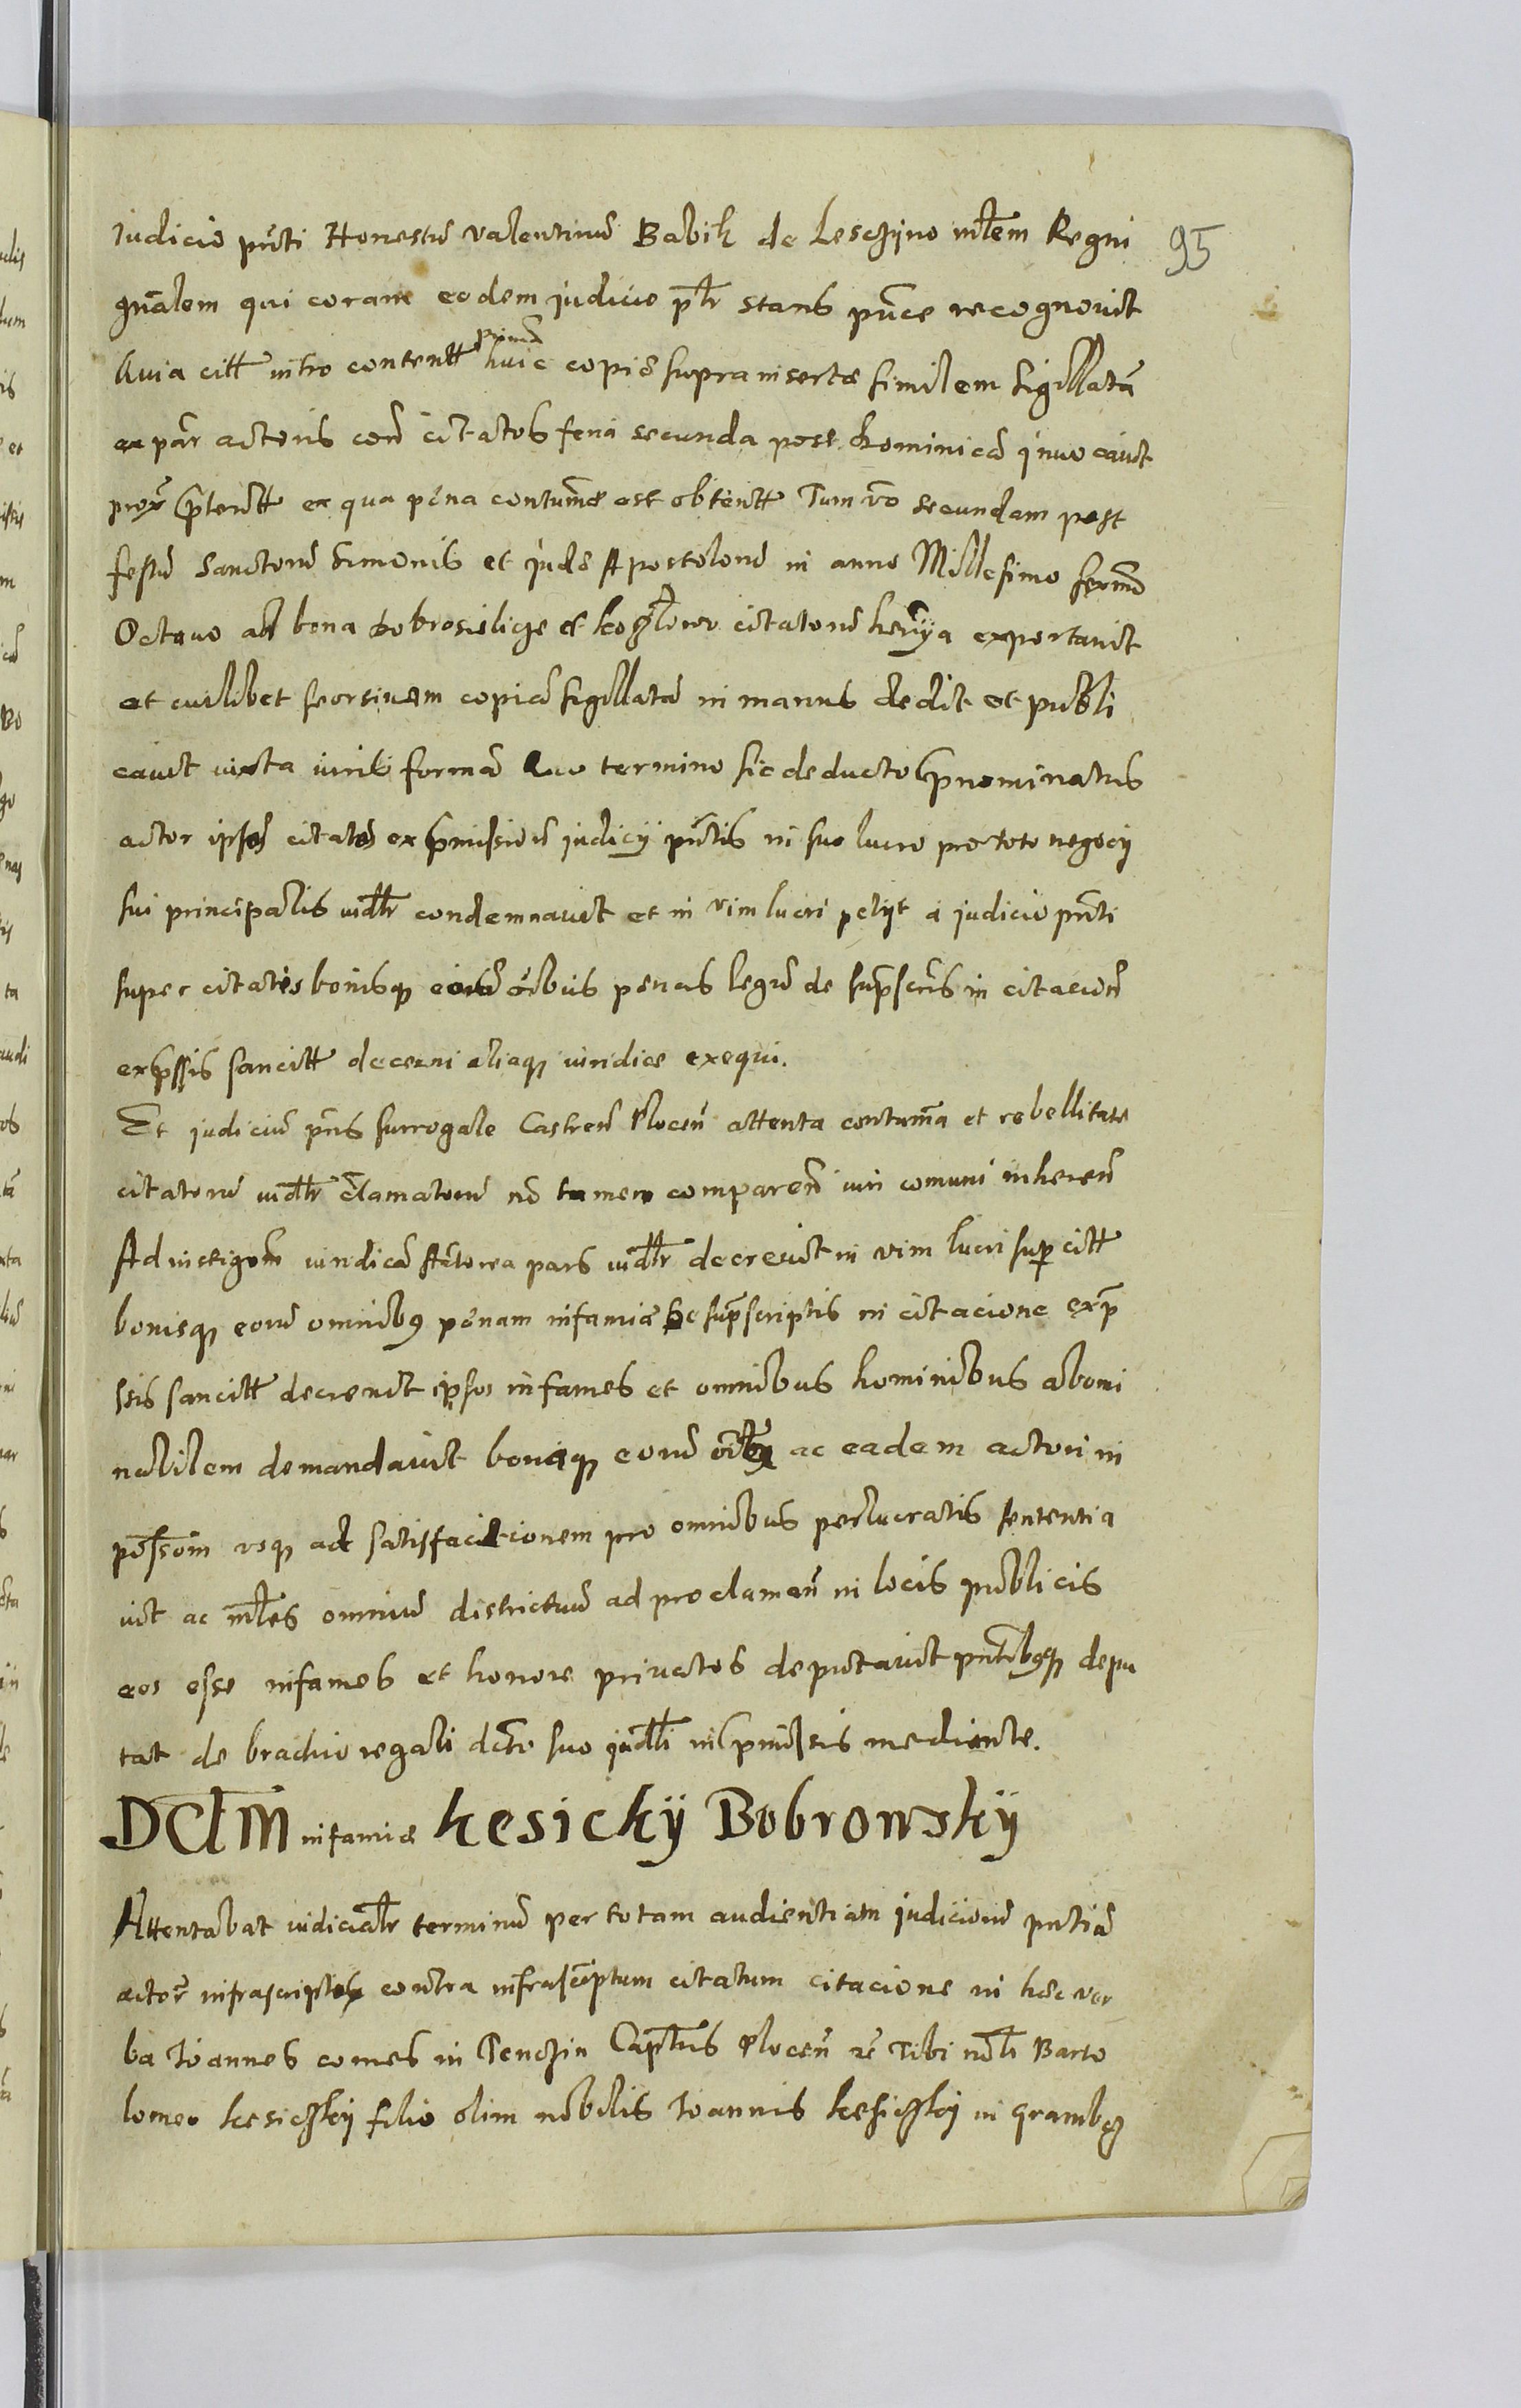 Iudicio pnti Honestu Valentinu Babik de Lesczyno mtlem Regni
95
gnalem qui coram eodem judicio ptr stans pnce recognovit
primu
huic copie supra inserte similem sigillata
ex par actoris con citatos feria secunda post Dominica invocavit
prox pteritt ex qua pena contuma est obtentt Tum vo secundam post
festu Sanctoru Simonis et Jude Apostoloru in anno Millesimo sexmo
Octavo ad bona Dobrosielicze et citatoru exportavit
et cuilibet seorsivam copia sigillata in manus dedit et publi
cavit iuxta iuris forma Quo termino sic deducto pnominatus
actor ipsos citatos ex pmissione judicij pntis in suo lucro pro toto negocij
sui principalis iudtr condemnavit et in vim lucri petijt a judicio pnti
super citatis bonisq eoru oibus penas legu de suprscris in citacion
expssis sancitt decerni aliaq iuridice exequi.
Et judiciu pns surrogale Castren Plocen attenta contuma et rebellitate
citatoru iudtr clamatoru no tamen comparen iuri comuni inheren
Ad instigom iuridica Actorea pars iudtr decrevit in vim lucri sup citt
bonisq eoru omnibq penam infamie de suprscriptis in citacione exp
ssis sancitt decrevit ipsos infames et omnibus hominibus abomi
nabilem demandavit bonaq eoru ac eadem actori in
possom usq ad satisfactionem pro omnibus perlucratis sententia
vit ac mtles omniu districtuu ad proclaman in locis publicis
eos esse infames et honore privatos deputavit pntibqq depu
tat de brachio regali dcto suo judtli in pmissis mediante.
DCtM infamie Kesicky Bobrowsky
Attentabat iudicialr terminu per totam audientiam judicioru pntiu
actor infrascriptus contra infrascriptum citatum citacione in hec ver
ba Joannes comes in Tenczin Captus Plocen Tibi nobli Barto
lomeo Kesiczky filio olim nobilis Joannis Kesiczky in